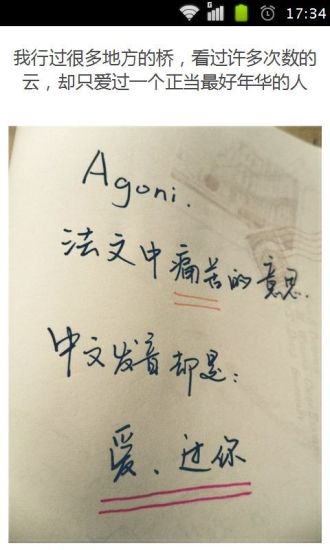 17:34
我行过很多地方的桥，看过许多次数的
云，却只爱过一个正当最好年华的人
Agoni.
法文中痛苦的意思.
中文发音却是：
爱、过你